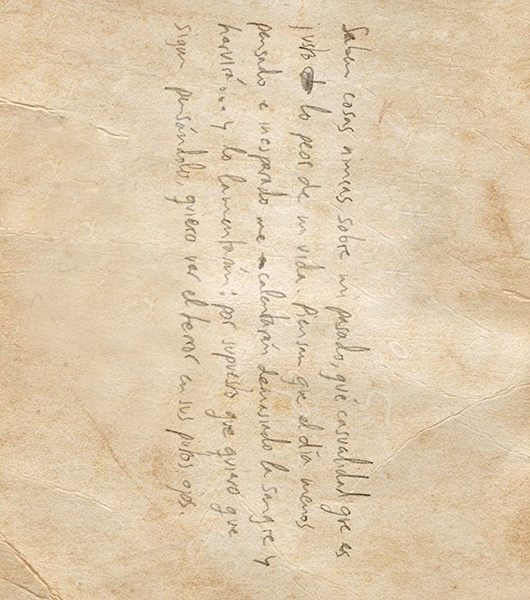 Saben cosas nimias sobre mi pasado, qué casualidad que es
justo lo peor de mi vida. Piensan que el día menos
pensado e inesperado me calentarán demasiado la sangre y
hervirá y lo lamentarán; por supuesto que quiero que
sigan pensándolo, quiero ver el terror en sus putos ojos.